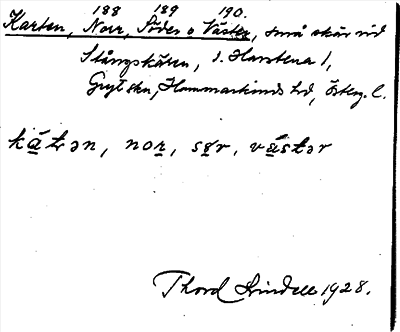 188 189 190.
Karten, Norr, Söder o Väster, små skär vid
Stångskären, 1. Harstena 1,
Gryt skn, Hammarkinds hd, Österg. l.
kåtən, nor, sør, västər
Thord Lindell 1928.